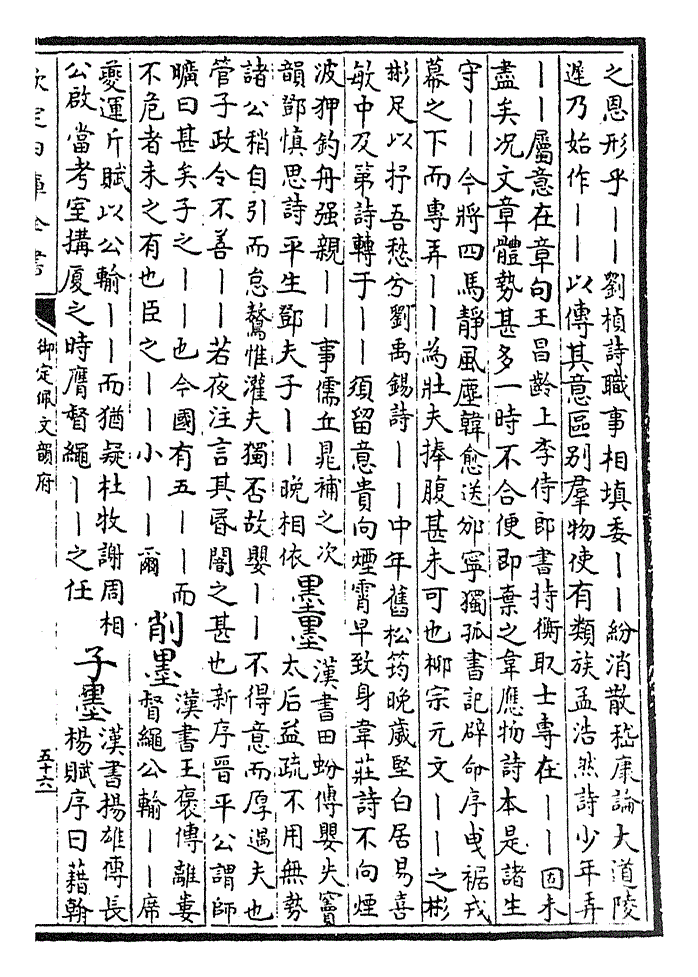 之恩形乎丨丨劉楨詩職事相填委丨丨紛消散嵇康論大道陵
遲乃始作丨丨以傳其意區别羣物使有類族孟浩然詩少年弄
丨丨屬意在章句王昌齡上李侍郎書持衡取士専在丨丨固未
盡矣况文章體勢甚多一時不合便即棄之韋應物詩本是諸生
守丨丨今將四馬靜風塵韓愈送邠寧獨孤書記辟命序曵裾戎
幕之下而專弄丨丨為壯夫捧腹甚未可也柳宗元文丨丨之彬
彬足以抒吾愁兮劉禹錫詩丨丨中年舊松筠晚歲堅白居易喜
敏中及第詩轉于丨丨須留意貴向煙霄早致身韋莊詩不向煙
波狎釣舟强親丨丨事儒丘晁補之次
韻鄧慎思詩平生鄧夫子丨丨晚相依
墨墨
漢書田蚡傅嬰失竇
太后益疏不用無勢
諸公稍自引而怠驁惟灌夫獨否故嬰丨丨不得意而厚遇夫也
管子政令不善丨丨若夜注言其昏闇之甚也新序晉平公謂師
曠曰甚矣子之丨丨也今國有五丨丨而
不危者未之有也臣之丨丨小丨丨爾
削墨
漢書王褒傳離婁
督繩公輸丨丨席
夔運斤賦以公輸丨丨而猶疑杜牧謝周相
公啟當考室搆厦之時膺督繩丨丨之任
子墨
漢書揚雄傳長
楊賦序曰藉翰
欽定四庫全書
御定佩文韻府
五十六